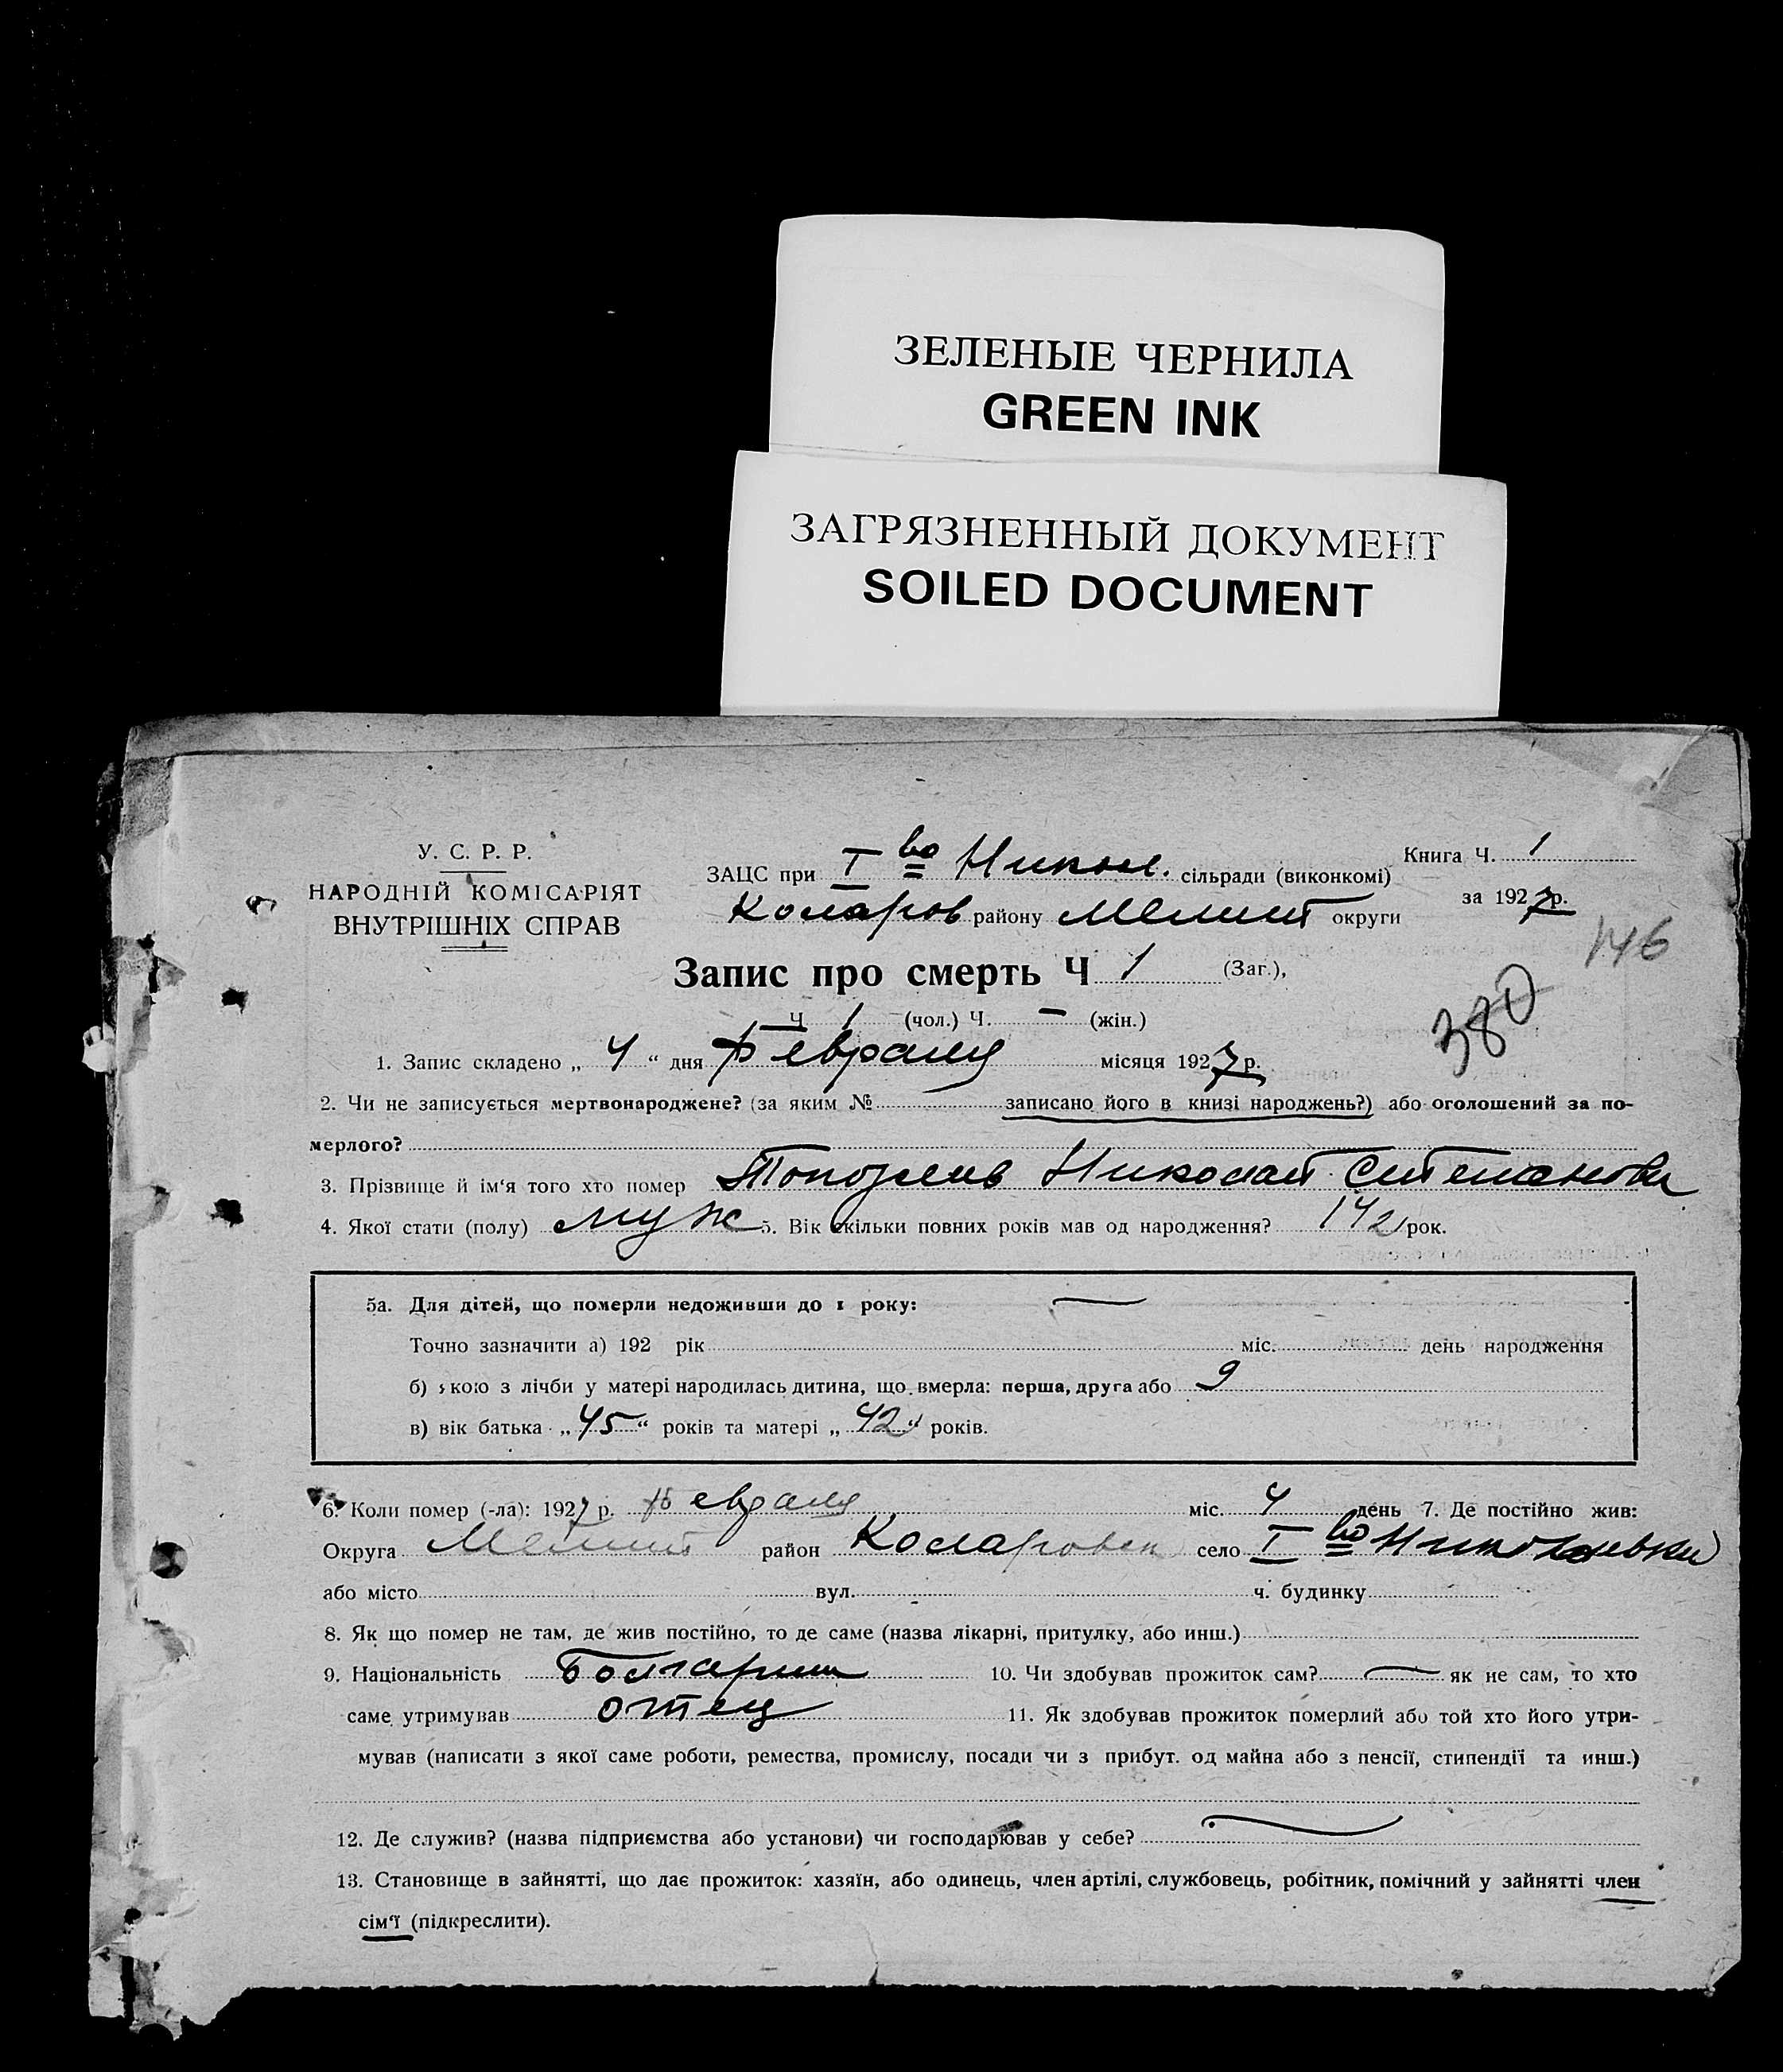 ЗЕЛЕНЫЕ ЧЕРНИЛА
GREEN INK
ЗАГРЯЗНЕННЫЙ ДОКУМЕНТ
SOILED DOCUMENT
У. С. Р. Р.
НАРОДНІЙ КОМІСАРІЯТ
ВНУТРІШНІХ СПРАВ
ЗАЦС при I во Никол. сільради (виконкомі)
Коларов району Мелит округи
Книга Ч. 1
за 1927 р.
146
Запис про смерть Ч 1 (Заг.),
380
Ч 1 (чол.) Ч. — (жін.)
1. Запис складено „ 4 “ дня Февраля місяця 1927 р.
2. Чи не записується мертвонароджене? (за яким № записано його в книзі народжень?) або оголошений за по-
мерлого?
3. Прізвище й ім‘я того хто помер Николай
4. Якої стати (полу) муж 5. Вік скільки повних років мав од народження? рок.
5а. Для дітей, що померли недоживши до 1 року: —
Точно зазначити а) 192 рік міс. день народження
б) якою з лічби у матері народилась дитина, що вмерла: перша, друга або 9
в) вік батька „ 45 “ років та матері „ 42 “ років.
6. Коли помер (-ла): 1927 р. Февраля міс. 4 день 7. Де постійно жив:
Округа Мелит район Коларовск село I во Николаевки
або місто вул. ч. будинку
8. Як що помер не там, де жив постійно, то де саме (назва лікарні, притулку, або инш.)
9. Національність Болгарин 10. Чи здобував прожиток сам? — як не сам, то хто
саме утримував отец 11. Як здобував прожиток померлий або той хто його утри-
мував (написати з якої саме роботи, ремества, промислу, посади чи з прибут. од майна або з пенсії, стипендії та инш.)
12. Де служив? (назва підприємства або установи) чи господарював у себе?
13. Становище в зайнятті, що дає прожиток: хазяїн, або одинець, член артілі, службовець, робітник, помічний у зайнятті член
сім‘ї (підкреслити).